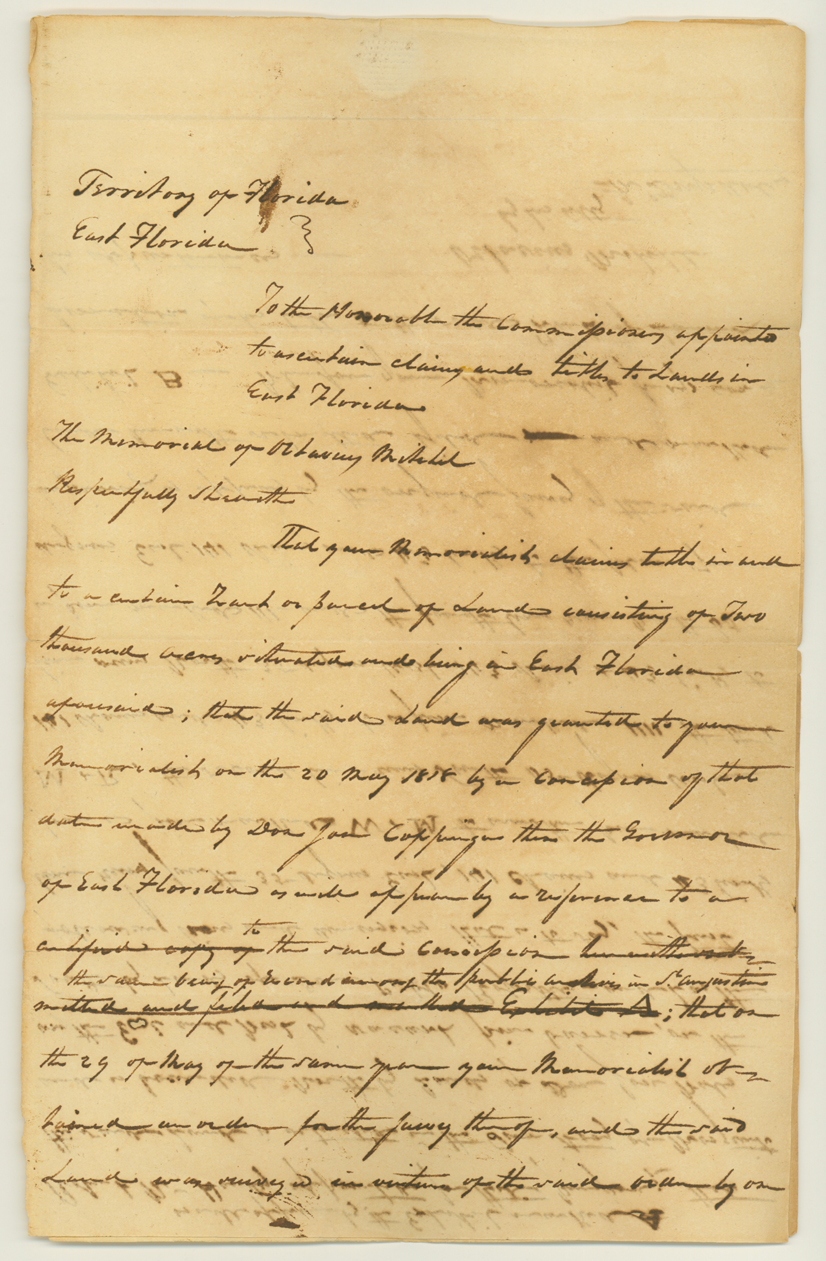 Territory of Florida
East Florida }
To the Honorable the Commissioners appointed
to ascertain claims and titles to Lands in
East Florida
The Memorial of Octavius Mitchel
Respectfully Sheweth
That your Memorialist claims title in and
to a certain Tract or parcel of Land consisting of Two
thousand acres situated and being in East Florida
aforesaid; that the said Land was granted to your
Memorialist on the 20 May 1818 by a Concession of that
date made by Don Jose Coppinger then the Governor
of East Florida as will appear by a reference to a
to
certified copy of the said Concession herewith sub-
the same being of record among the public archives in St. Augustine
mitted and filed and marked Exhibit A; that on
the 29 of May of the same year your Memorialist ob-
tained an order for the survey thereof, and the said
Land was surveyed in virtue of the said order by one